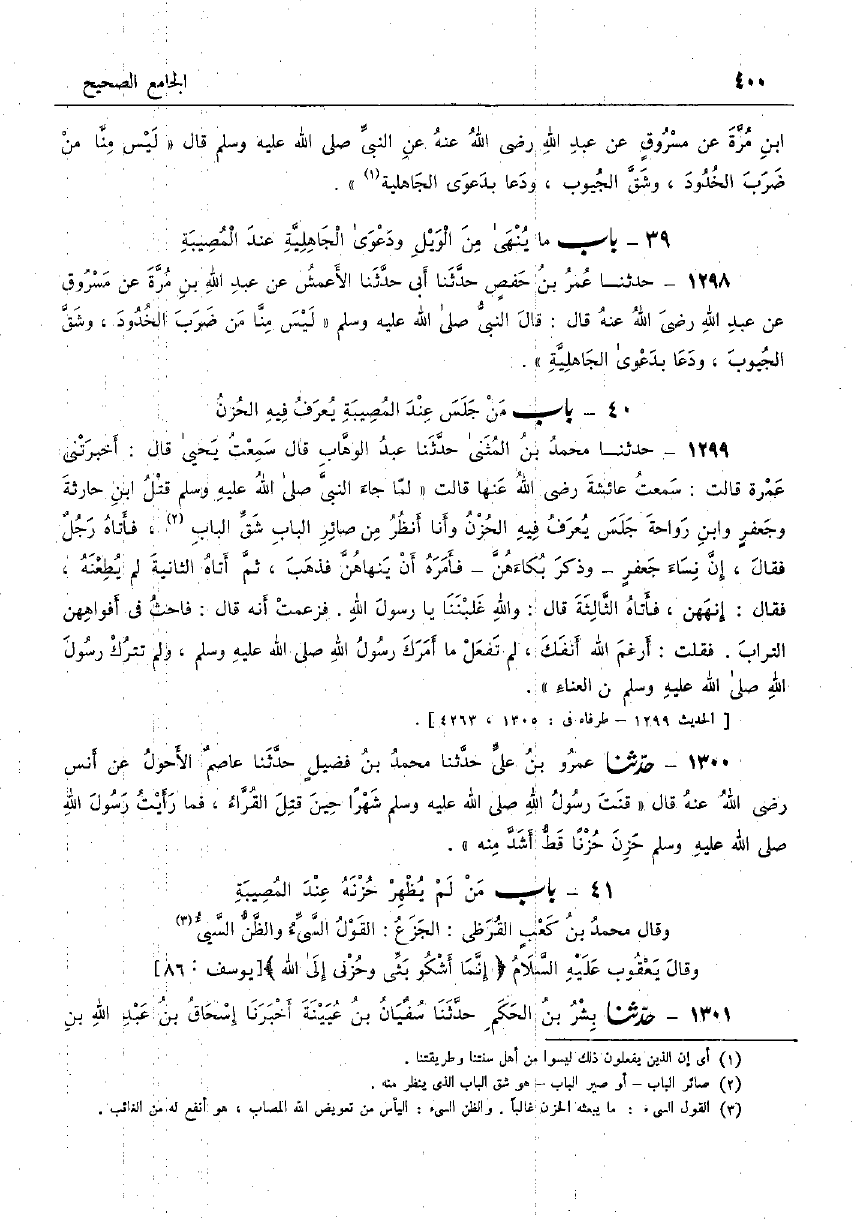 ٤٠٠ الجامع الصحيح
ابنِ مُرَّةَ عن مسْرُوقٍ عن عبدِ اللهِ رضى اللهُ عنهُ عنِ النبىِّ صلى الله عليه وسلم قال « لَيْس مِنَّا منْ
ضَرَبَ الخُدُودَ ، وشَقَّ الجُيوب ، ودَعا بدعوَى الجَاهلية(١) » .
٣٩ – باب ما يُنْهَىٰ مِنَ الْوَيْلِ ودَعْوَىٰ الْجَاهِلِيَّةِ عندَ الْمُصِيبَةِ
١٢٩٨ – حدثنــا عُمَرُ بنُ حَفصٍ حدَّثَنا أبى حدَّثَنا الأعمشُ عن عبدِ اللهِ بنِ مُرَّةَ عن مَسْرُوق
عن عبدِ اللهِ رضىَ اللهُ عنهُ قال : قالَ النبىُّ صلىٰ الله عليه وسلم « لَيْسَ مِنَّا مَن ضَرَبَ الخُدُودَ ، وشَقَّ
الجُيوبَ ، ودَعَا بدَعْوىٰ الجَاهلِيَّةِ » .
٤٠ – باب مَنْ جَلَسَ عِنْدَ المُصِيبَةِ يُعرَفُ فِيهِ الحُزنُ
١٢٩٩ – حدثنــا محمدُ بنُ المُثنىٰ حدَّثَنا عبدُ الوهَّابِ قال سَمِعْتُ يَحيىٰ قال : أخبرَتْنى
عَمْرة قالت : سَمعتُ عائشةَ رضى اللهُ عَنها قالت « لمّا جاءَ النبىَّ صلىٰ اللهُ عليهِ وسلم قتْلُ ابنِ حارثة
وجَعفرٍ وابنِ رَواحةَ جَلَسَ يُعرَفُ فيهِ الحُزْنُ وأنا أنظُرُ مِن صائرِ البابِ شَقِّ البابِ (٢) ، فـأتاهُ رَجُلٌ
فقالَ ، إنَّ نِساءَ جَعفرٍ – وذكرَ بُكاءَهُنَّ – فـأمَرَهُ أنْ يَنهاهُنَّ فذهَبَ ، ثمَّ أتاهُ الثانيةَ لم يُطِعْنَهُ ،
فقال : إنهَهن ، فـأتاهُ الثَّالِثَةَ قال : واللهِ غَلَبْنَنَا يا رسولَ اللهِ . فزعمتْ أنه قال : فاحثُ فى أفواهِهن
الترابَ . فقلت : أرغمَ الله أنفَكَ ، لم تَفعَلْ ما أمَرَكَ رسُولُ اللهِ صلى الله عليهِ وسلم ، ولم تترُكْ رسولَ
اللهِ صلىٰ الله عليهِ وسلم ن العناء » .
[ الحديث ١٢٩٩ – طرفاه فى : ١٣٠٥ ، ٤٢٦٣ ] .
١٣٠٠ – حدّثنا عمرُو بنُ علىٍّ حدَّثنا محمدُ بنُ فضيلٍ حدَّثَنا عاصمٌ الأحولُ عن أنس
رضى اللهُ عنهُ قال « قنَتَ رسولُ اللهِ صلى الله عليه وسلم شَهْرًا حِينَ قتِلَ القُرَّاءُ ، فما رَأَيْتُ رَسُولَ اللهِ
صلى الله عليهِ وسلم حَزِنَ حُزْنًا قطُّ أشَدَّ مِنه » .
٤١ – باب مَنْ لَمْ يُظْهِرْ حُزْنَهُ عِنْدَ المُصِيبَةِ
وقال محمدُ بنُ كَعْبٍ القُرَظى : الجَزَعُ : القَوْلُ السَّيِّءُ والظَّنُّ السَّيىءُ(٣)
وقالَ يَعْقُوب عَلَيْهِ السَّلَامُ ﴿ إِنَّمَا أَشْكُو بَثِّى وحُزْنى إلىٰ الله ﴾[يوسف : ٨٦]
١٣٠١ – حدّثنا بِشْرُ بنُ الحَكَمِ حدَّثَنَا سُفْيَانُ بنُ عُيَيْنَةَ أَخْبَرَنَا إِسْحَاقُ بنُ عَبْدِ اللهِ بنِ
(١) أى إن الذين يفعلون ذلك ليسوا من أهل سنتنا وطريقتنا .
(٢) صائر الباب – أو صير الباب – هو شق الباب الذى ينظر منه .
(٣) القول السىء : ما يبعثه الحزن غالباً . والظن السىء : اليأس من تعويض الله المصاب ، هو أنفع له من الفائب .